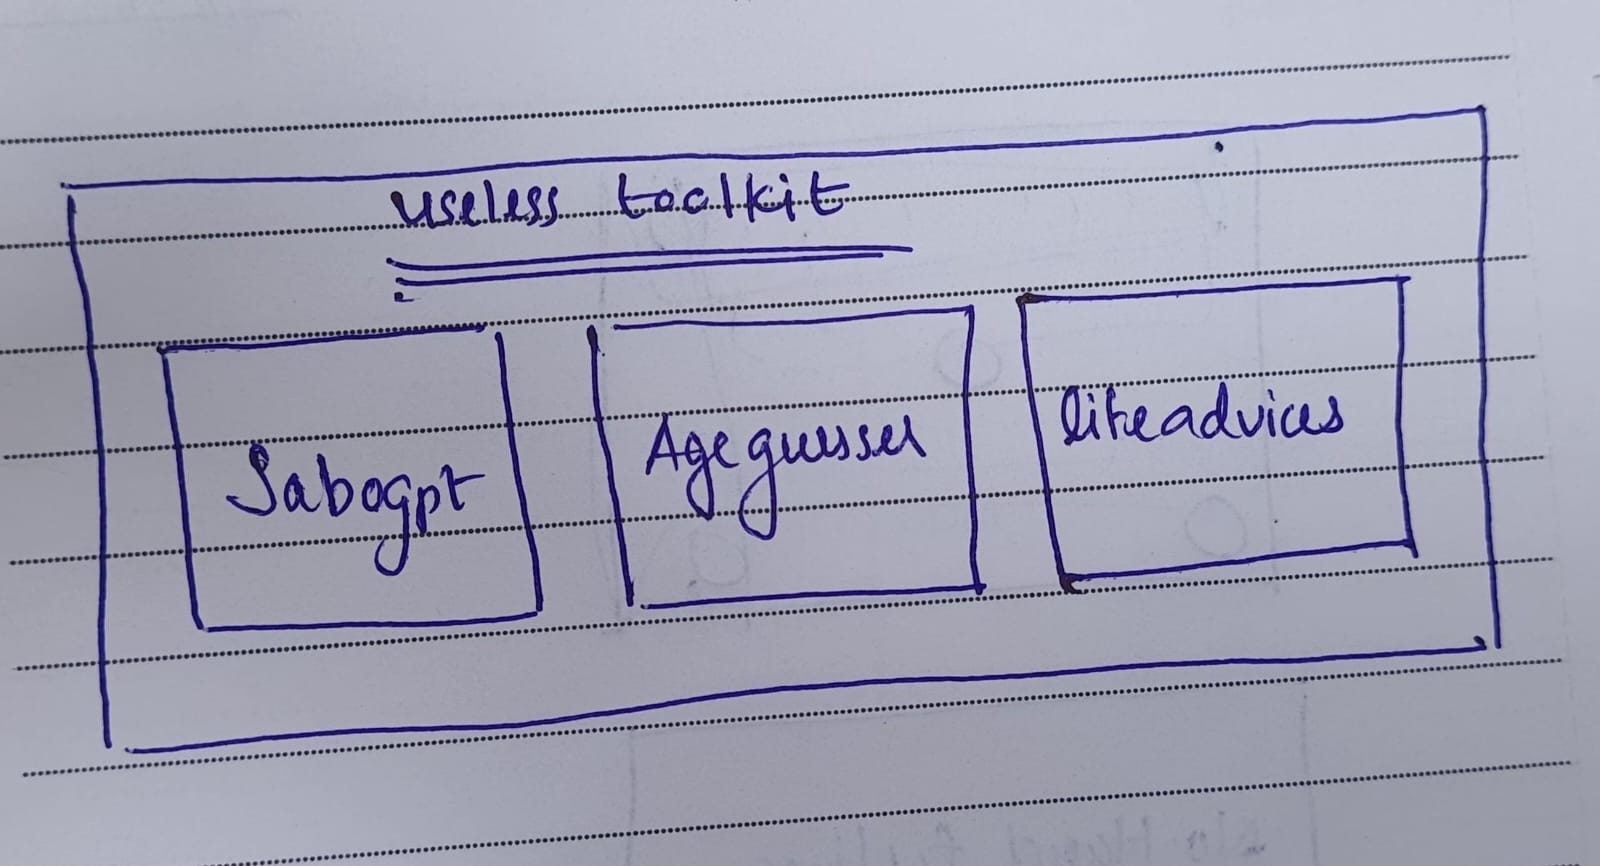 useless toolkit
Sabogpt
Age guesser
lifeadvices